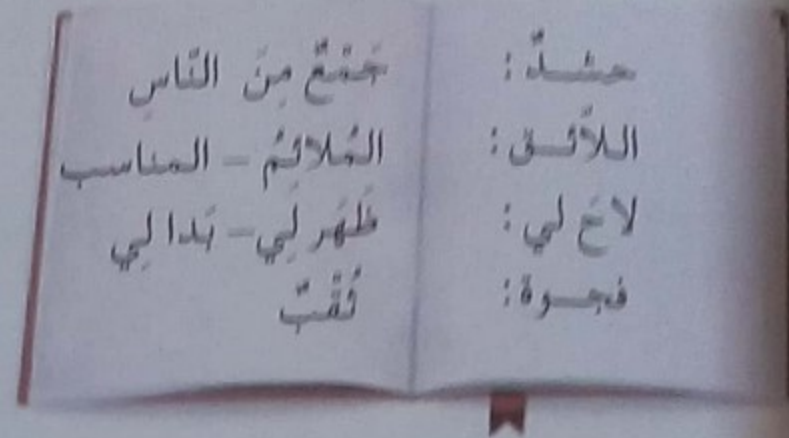 حشدٌ : جَمْعٌ مِنَ النَّاسِ
اللاَّئق : المُلائِمُ – المناسب
لاحَ لي : ظَهَر لِي – بَدا لِي
فجوة : ثُقْبٌ